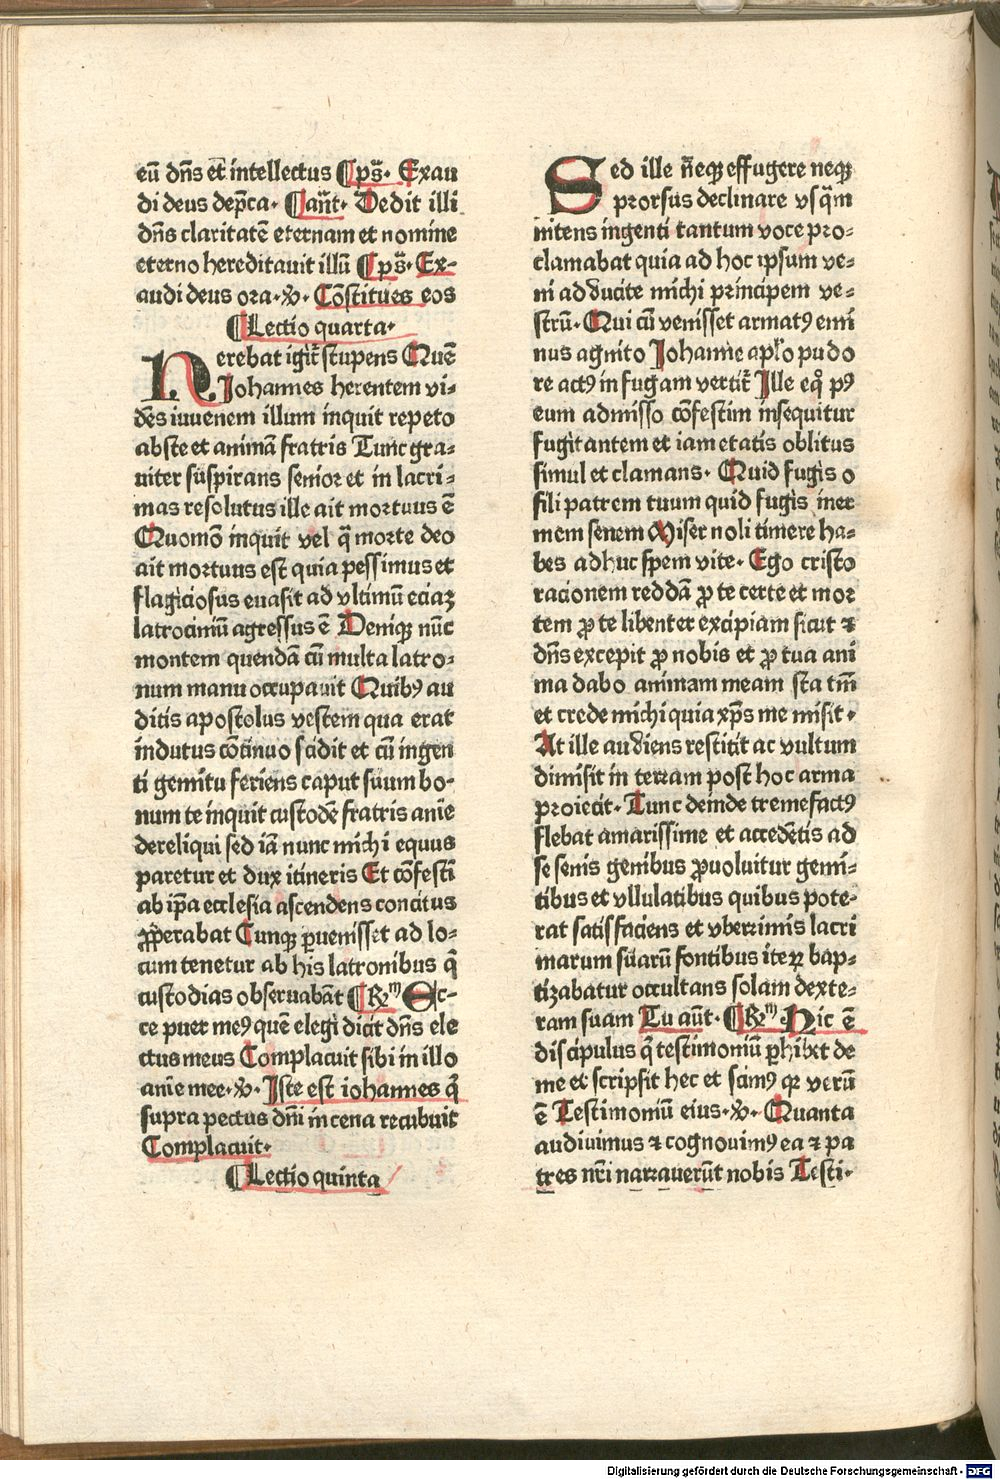 eū dn̄s et̄ intellectus ¶ ps̄. Exau
di deus dep̄ca. ¶ an̄t. Dedit illi
dn̄s claritatē eternam et nomine
eterno hereditauit illū ¶ ps̄. Ex-
audi deus ora. ℣. Cōstitues eos
¶ Lectio quarta.
Herebat igit̄ stupens Quē
Johannes herentem vi-
dēs iuuenem illum inquit repeto
abste et animā fratris Tunc gra-
uiter suspirans senior et in lacri-
mas resolutus ille ait mortuus ē
Quomō inquit vel q̄ morte deo
ait mortuus est quia pessimus et
flagiciosus euasit ad vltimū eciaꝫ
latrociniū agressus ē Deniqꝫ nūc
montem quendā cū multa latro-
num manu occupauit Quibꝰ au
ditis apostolus vestem qua erat
indutus cōtinuo scidit et cū ingen
ti gemitu feriens caput suum bo-
num te inquit custodē fratris anīe
dereliqui sed iā nunc michi equus
paretur et dux itineris Et cōfestī
ab ip̄a ecclesia ascendens concitus
ꝓꝑerabat Cunqꝫ ꝑuenisset ad lo-
cum tenetur ab his latronibus q̄
custodias obseruabāt ¶ Rm̄ Ec-
ce puer meꝰ quē elegi dicit dn̄s ele
ctus meus Complacuit sibi in illo
anīe mee. ℣. Iste est iohannes q̄
supra pectus dn̄i in cena recubuit
Complacuit.
¶ Lectio quinta
Sed ille n̄eqꝫ effugere neqꝫ
prorsus declinare vsq̄m
nitens ingenti tantum voce pro-
clamabat quia ad hoc ipsum ve-
ni adducite michi principem ve-
strū. Qui cū venisset armatꝰ emi
nus agnito Johanne apl̄o pudo
re actꝰ in fugam vertit̄ Ille eq̊ pꝰ
eum admisso cōfestim insequitur
fugitantem et iam etatis oblitus
simul et clamans. Quid fugis o
fili patrem tuum quid fugis iner
mem senem Miser noli timere ha-
bes adhuc spem vite. Ego cristo
racionem reddā ꝓ te certe et mor
tem ꝓ te libenter excipiam sicut ⁊
dn̄s excepit ꝓ nobis et ꝓ tua ani
ma dabo animam meam sta tm̄
et crede michi quia xp̄s me misit.
At ille audiens restitit ac vultum
dimisit in terram post hoc arma
proiecit. Tunc deinde tremefactꝰ
flebat amarissime et accedētis ad
se senis genibus ꝓuoluitur gemi-
tibus et vllulatibus quibus pote-
rat satisfaciens et vberrimis lacri
marum suarū fontibus iteꝝ bap-
tizabatur occultans solam dexte-
ram suam Tu aūt. ¶ Rm̄ Hic ē
discipulus q̄ testimoniū ꝑhibet de
me et scripsit hec et scimꝰ qꝛ verū
ē Testimoniū eius. ℣. Quanta
audiuimus ⁊ cognouimꝰ ea ⁊ pa
tres nr̄i narrauerūt nobis Testi.
Digitalisierung gefördert durch die Deutsche Forschungsgemeinschaft - DFG